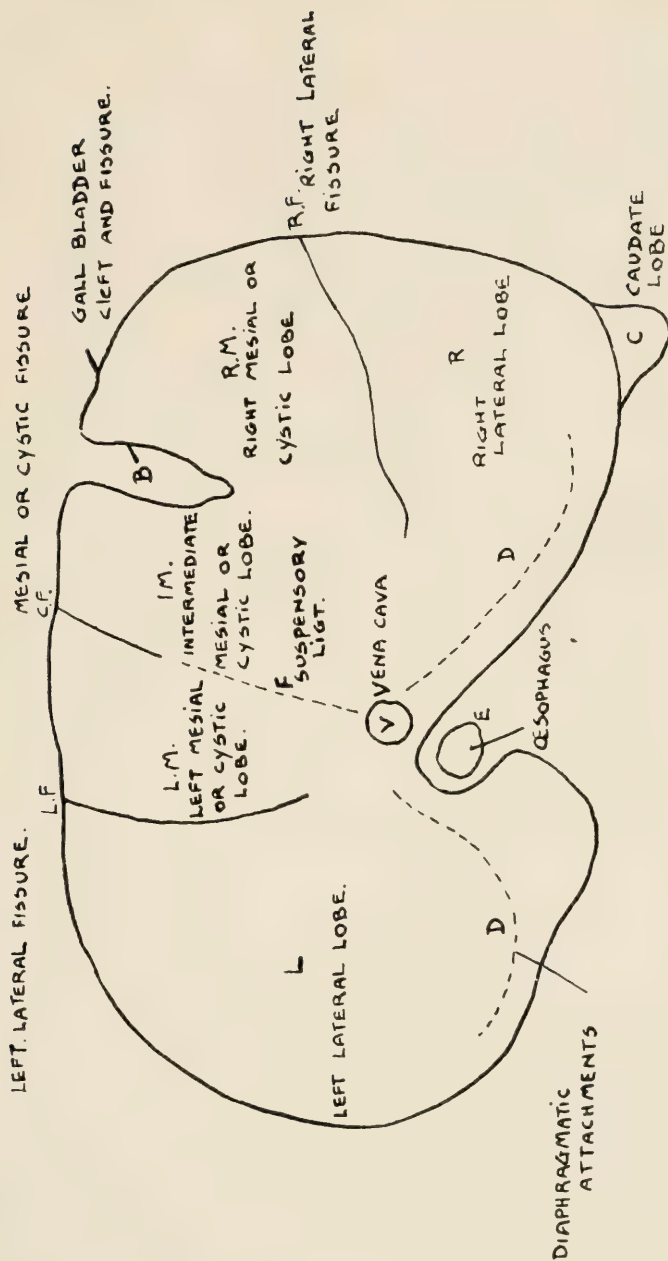 LEFT. LATERAL FISSURE.
MESIAL OR CYSTIC FISSURE
GALL BLADDER
CLEFT AND FISSURE.
L.F
C.F.
B
R.F. RIGHT LATERAL
FISSURE
L.M.
LEFT MESIAL
OR CYSTIC
LOBE.
I M.
INTERMEDIATE
MESIAL OR
CYSTIC LOBE.
R.M.
RIGHT MESIAL OR
CYSTIC LOBE
F
SUSPENSORY
LIGT.
L
LEFT LATERAL LOBE.
V
VENA CAVA
R
RIGHT
LATERAL LOBE
D
D
E
ŒSOPHAGUS
C
CAUDATE
LOBE
DIAPHRAGMATIC
ATTACHMENTS